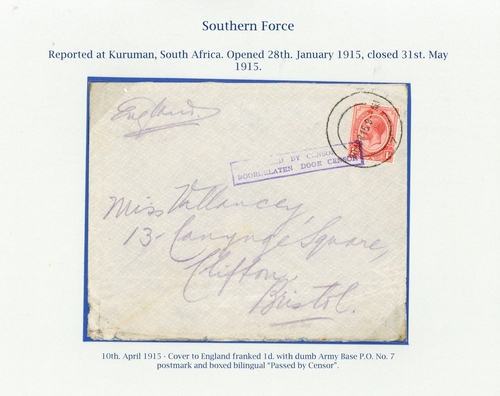 Southern Force
Reported at Kuruman, South Africa. Opened 28th. January 1915, closed 31st. May
1915.
England
BY CENSOR
DOORGELATEN DOOR CENSOR
Miss Vallancey,
13 - Canynge Square,
Clifton,
Bristol.
10th. April 1915 - Cover to England franked 1d. with dumb Army Base P.O. No. 7
postmark and boxed bilingual "Passed by Censor".